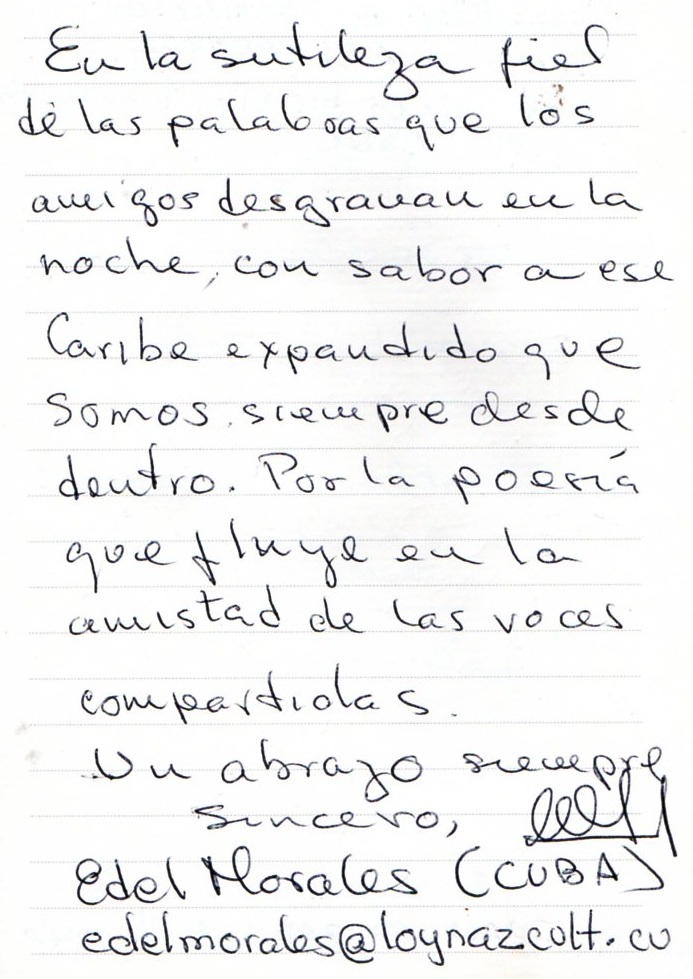 En la sutileza fiel
de las palabras que los
amigos desgranan en la
noche, con sabor a ese
Caribe expandido que
somos siempre desde
dentro. Por la poesía
que fluye en la
amistad de las voces
compartidas.
Un abrazo siempre
sincero,
Edel Morales (CUBA)
edelmorales@loynazcult.cu